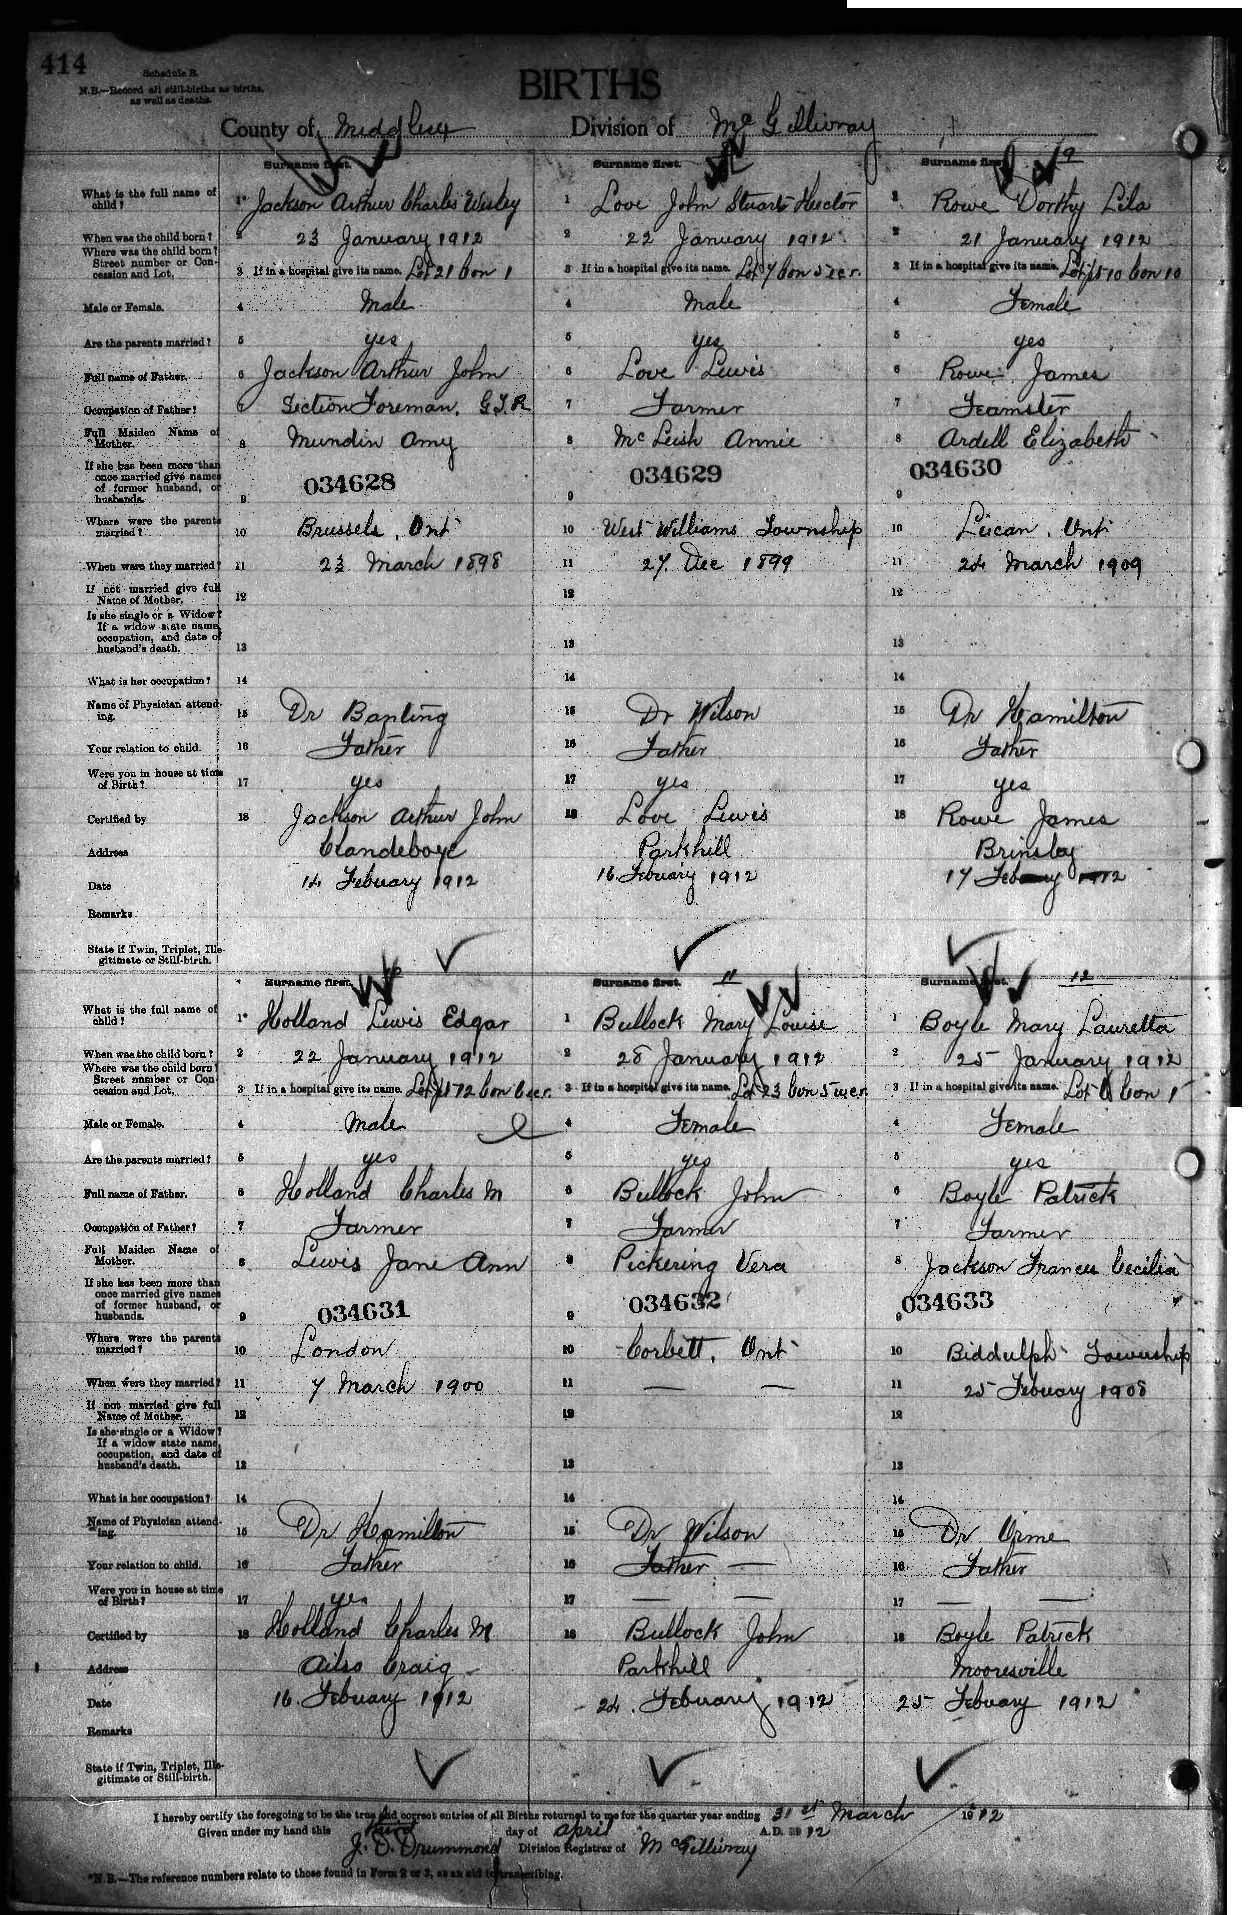 414
Schedule B.
N.B.—Record all still-births as births, as well as deaths.
BIRTHS
County of Middlesex Division of McGillivray
Surname first. Surname first. Surname first. 9
What is the full name of child? 1* Jackson Arthur Charles Wesley 1 Love John Stuart Hector 1 Rowe Dorthy Lila
When was the child born? 2 23 January 1912 2 22 January 1912 2 21 January 1912
Where was the child born? Street number or Concession and Lot. 3 If in a hospital give its name. Lot 21 Con 1 3 If in a hospital give its name. Lot 7 Con 5 3 If in a hospital give its name. Lot 10 Con 10
Male or Female. 4 Male 4 Male 4 Female
Are the parents married? 5 yes 5 yes 5 yes
Full name of Father. 6 Jackson Arthur John 6 Love Lewis 6 Rowe James
Occupation of Father? 7 Section Foreman. G.T.R 7 Farmer 7 Teamster
Full Maiden Name of Mother. 8 Mundin Amy 8 McLeish Annie 8 Ardell Elizabeth
If she has been more than once married give names of former husband, or husbands. 9 034628 9 034629 9 034630
Where were the parents married? 10 Brussels, Ont 10 West Williams Township 10 Lucan, Ont
When were they married? 11 23 March 1898 11 27 Dec 1899 11 24 March 1909
If not married give full Name of Mother. 12 12 12
Is she single or a Widow? If a widow state name, occupation, and date of husband's death. 13 13 13
What is her occupation? 14 14 14
Name of Physician attending. 15 Dr Banting 15 Dr Wilson 15 Dr Hamilton
Your relation to child. 16 Father 16 Father 16 Father
Were you in house at time of Birth? 17 yes 17 yes 17 yes
Certified by 18 Jackson Arthur John 18 Love Lewis 18 Rowe James
Address Clandeboye Parkhill Brinsley
Date 14 Febuary 1912 16 Febuary 1912 17 Febuary 1912
Remarks
State if Twin, Triplet, Illegitimate or Still-birth.
Surname first. Surname first. 11 Surname first. 12
What is the full name of child? 1* Holland Lewis Edgar 1 Bullock Mary Louise 1 Boyle Mary Lauretta
When was the child born? 2 22 January 1912 2 28 January 1912 2 25 January 1912
Where was the child born? Street number or Concession and Lot. 3 If in a hospital give its name. Lot 12 Con 3 If in a hospital give its name. Lot 23 Con 5 w.c.r. 3 If in a hospital give its name. Lot Con 1
Male or Female. 4 Male 4 Female 4 Female
Are the parents married? 5 yes 5 yes 5 yes
Full name of Father. 6 Holland Charles M 6 Bullock John 6 Boyle Patrick
Occupation of Father? 7 Farmer 7 Farmer 7 Farmer
Full Maiden Name of Mother. 8 Lewis Jane Ann 8 Pickering Vera 8 Jackson Frances Cecilia
If she has been more than once married give names of former husband, or husbands. 9 034631 9 034632 9 034633
Where were the parents married? 10 London 10 Corbett, Ont 10 Biddulph Township
When were they married? 11 7 March 1900 11 — — 11 25 Febuary 1908
If not married give full Name of Mother. 12 12 12
Is she single or a Widow? If a widow state name, occupation, and date of husband's death. 13 13 13
What is her occupation? 14 14 14
Name of Physician attending. 15 Dr Hamilton 15 Dr Wilson 15 Dr Orme
Your relation to child. 16 Father 16 Father — 16 Father
Were you in house at time of Birth? 17 yes 17 — — 17 — —
Certified by 18 Holland Charles M 18 Bullock John 18 Boyle Patrick
Address Ailsa Craig Parkhill Mooresville
Date 16 Febuary 1912 24 Febuary 1912 25 Febuary 1912
Remarks
State if Twin, Triplet, Illegitimate or Still-birth.
I hereby certify the foregoing to be the true and correct entries of all Births returned to me for the quarter year ending 31st March 1912
Given under my hand this third day of April A.D. 1912
J. D. Drummond Division Registrar of McGillivray
*N.B.—The reference numbers relate to those found in Form 2 or 3, as an aid to transcribing.